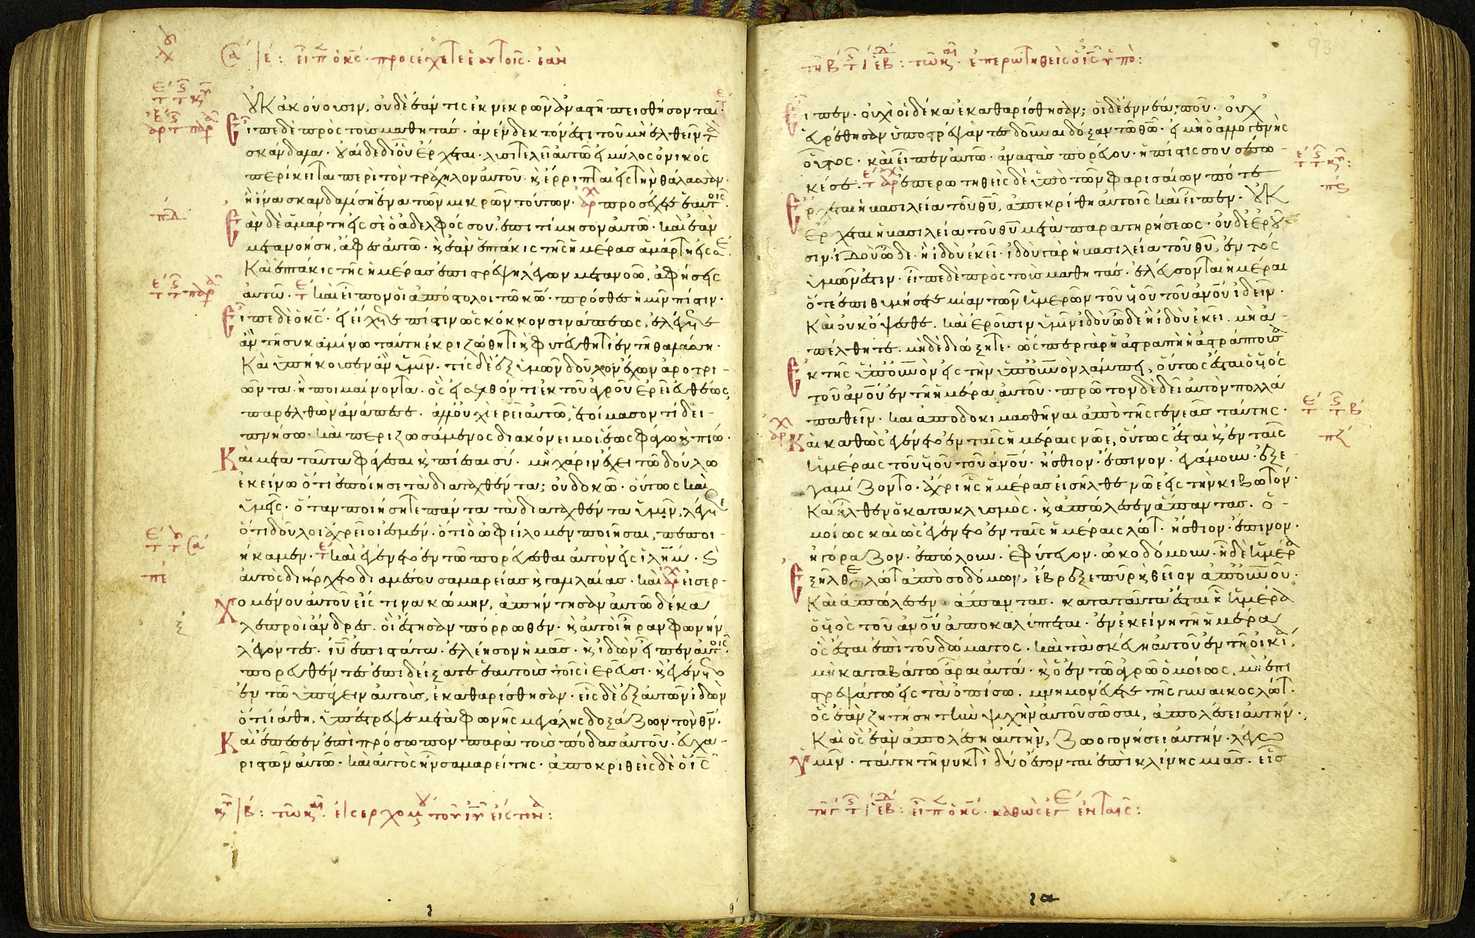 οὐκ ἀκούουσιν, οὐδὲ ἐάν τις ἐκ νεκρῶν ἀναστῆ πεισθήσονται·
Εἶπε δὲ πρὸς τοὺς μαθητάς· ἀνένδεκτόν ἐστι τοῦ μὴ ἐλθεῖν τὰ
σκάνδαλα· οὐαὶ δὲ δι οὗ ἔρχεται· λυσιτελεῖ αὐτῶ εἰ μύλος ὀνικὸς
περίκειται περὶ τὸν τράχηλον αὐτοῦ· κ ἔρριπται εἰς τὴν θάλασσαν·
ἢ ἵνα σκανδαλίση ἕνα τῶν μικρῶν τούτων· προσέχετε ἑαυτοῖς·
Ἐὰν δὲ ἁμάρτη εἰς σὲ ὁ ἀδελφός σου, ἐπιτίμησον αὐτῶ· καὶ ἐὰν
μετανοήση, ἄφες αὐτῶ· κ ἐὰν ἑπτάκις τῆς ἡμέρας ἁμάρτη εἰς σὲ
Καὶ ἑπτάκις τῆς ἡμέρας ἐπιστρέψη λέγων μετανοῶ, ἀφήσεις
αὐτῶ· καὶ εἶπον οἱ ἀπόστολοι τῶ κω· πρόσθες ἡμῖν πίστιν·
Εἶπε δὲ ὁ κς· εἰ ἔχετε πίστιν ὡς κόκκον σινάπεως, ἐλέγετε
ἂν τῆ συκαμίνω ταύτη ἐκριζώθητι κ φυτεύθητι ἐν τῆ θαλάσση·
Καὶ ὑπήκουσεν ἂν ὑμῖν· τίς δὲ ἐξ ὑμῶν δοῦλον ἔχων ἀροτρι-
ῶντα ἢ ποιμαίνοντα· ὃς εἰσελθόντι ἐκ τοῦ ἀγροῦ ἐρεῖ εὐθέως,
παρελθὼν ἀνάπεσε· ἀλλ οὐχὶ ἐρεῖ αὐτῶ, ἑτοίμασον τί δει-
πνήσω· καὶ περιζωσάμενος διακόνει μοι ἕως φάγω κ πίω·
Καὶ μετὰ ταῦτα φάγεσαι κ πίεσαι σύ· μὴ χάριν ἔχει τῶ δούλω
ἐκείνω ὅτι ἐποίησε τὰ διαταχθέντα; οὐ δοκῶ· οὕτως καὶ
ὑμεῖς· ὅταν ποιήσητε πάντα τὰ διαταχθέντα ὑμῖν, λέγετε
ὅτι δοῦλοι ἀχρεῖοι ἐσμέν· ὅτι ὃ ὠφείλομεν ποιῆσαι, πεποι-
ήκαμεν· καὶ ἐγένετο ἐν τῶ πορεύεσθαι αὐτὸν εἰς ιλημ· κ
αὐτὸς διήρχετο διὰ μέσου σαμαρείας κ γαλιλαίας· καὶ εἰσερ-
χομένου αὐτοῦ εἴς τινα κώμην, ἀπήντησαν αὐτῶ δέκα
λεπροὶ ἄνδρες· οἳ ἔστησαν πόρρωθεν· κ αὐτοὶ ἦραν φωνὴν
λέγοντες· ιυ ἐπιστάτα· ἐλέησον ἡμᾶς· κ ἰδὼν εἶπεν αὐτοῖς·
πορευθέντες ἐπιδείξατε ἑαυτοὺς τοῖς ἱερεῦσι· κ ἐγένετο
ἐν τῶ ὑπάγειν αὐτούς, ἐκαθαρίσθησαν· εἷς δὲ ἐξ αὐτῶν ἰδὼν
ὅτι ἰάθη, ὑπέστρεψε μετὰ φωνῆς μεγάλης δοξάζων τὸν θν·
Καὶ ἔπεσεν ἐπὶ πρόσωπον παρὰ τοὺς πόδας αὐτοῦ· εὐχα-
ριστῶν αὐτῶ· καὶ αὐτὸς ἦν σαμαρείτης· ἀποκριθεὶς δὲ ὁ ις
εἶπεν· οὐχὶ οἱ δέκα ἐκαθαρίσθησαν; οἱ δὲ ἐννέα ποῦ· οὐχ
εὑρέθησαν ὑποστρέψαντες δοῦναι δόξαν τῶ θω· εἰ μὴ ὁ ἀλλογενὴς
οὗτος· καὶ εἶπεν αὐτῶ· ἀναστὰς πορεύου· ἡ πίστις σου σέσω-
κέ σε· ἐπερωτηθεὶς δὲ ὑπὸ τῶν φαρισαίων πότε
Ἔρχεται ἡ βασιλεία τοῦ θυ, ἀπεκρίθη αὐτοῖς καὶ εἶπεν· οὐκ
ἔρχεται ἡ βασιλεία τοῦ θυ μετὰ παρατηρήσεως· οὐδὲ ἐροῦ-
σιν ἰδοὺ ὧδε· ἢ ἰδοὺ ἐκεῖ· ἰδοὺ γὰρ ἡ βασιλεία τοῦ θυ, ἐντὸς
ὑμῶν ἐστιν· εἶπε δὲ πρὸς τοὺς μαθητάς· ἐλεύσονται ἡμέραι
ὅτε ἐπιθυμήσετε μίαν τῶν ἡμερῶν τοῦ υυ τοῦ ανου ἰδεῖν·
Καὶ οὐκ ὄψεσθε· καὶ ἐροῦσιν ὑμῖν ἰδοὺ ὧδε ἢ ἰδοὺ ἐκεῖ· μὴ ἀ-
πέλθητε· μὴ δὲ διώξητε· ὥσπερ γὰρ ἡ ἀστραπὴ ἡ ἀστράπτουσα
Ἐκ τῆς ὑπ ουνον εἰς τὴν ὑπ ουνον λάμπει, οὕτως ἔσται ὁ υς
τοῦ ανου ἐν τῆ ἡμέρα αὐτοῦ· πρῶτον δὲ δεῖ αὐτὸν πολλὰ
παθεῖν· καὶ ἀποδοκιμασθῆναι ἀπὸ τῆς γενεᾶς ταύτης·
Καὶ καθὼς ἐγένετο ἐν ταῖς ἡμέραις νῶε, οὕτως ἔσται κ ἐν ταῖς
ἡμέραις τοῦ υυ τοῦ ανου· ἤσθιον· ἔπινον· ἐγάμουν· ἐξε-
γαμίζοντο· ἄχρι ἧς ἡμέρας εἰσῆλθε νῶε εἰς τὴν κιβωτόν·
Καὶ ἦλθεν ὁ κατακλυσμός· κ ἀπώλεσεν ἅπαντας· ὁ-
μοίως καὶ ὡς ἐγένετο ἐν ταῖς ἡμέραις λώτ· ἤσθιον· ἔπινον·
ἠγόραζον· ἐπώλουν· ἐφύτευον· ὠκοδόμουν· ἧ δὲ ἡμέρα
Ἐξῆλθε λὼτ ἀπὸ σοδόμων, ἔβρεξε πῦρ κ θεῖον ἀπ ουνου·
Καὶ ἀπώλεσεν ἅπαντας· κατὰ ταῦτα ἔσται ἧ ἡμέρα
ὁ υς τοῦ ανου ἀποκαλύπτεται· ἐν ἐκείνη τῆ ἡμέρα
ὃς ἔσται ἐπὶ τοῦ δώματος· καὶ τὰ σκεύη αὐτοῦ ἐν τῆ οἰκία,
μὴ καταβάτω ἆραι αὐτά· κ ὁ ἐν τῶ ἀγρῶ ὁμοίως, μὴ ἐπι-
στρεψάτω εἰς τὰ ὀπίσω· μνημονεύετε τῆς γυναικὸς λώτ·
ὃς ἐὰν ζητήση τὴν ψυχὴν αὐτοῦ σῶσαι, ἀπολέσει αὐτήν·
Καὶ ὃς ἐὰν ἀπολέση αὐτήν, ζωογονήσει αὐτήν· λέγω
ὑμῖν· ταύτη τῆ νυκτὶ δύο ἔσονται ἐπὶ κλίνης μιᾶς· εἷς